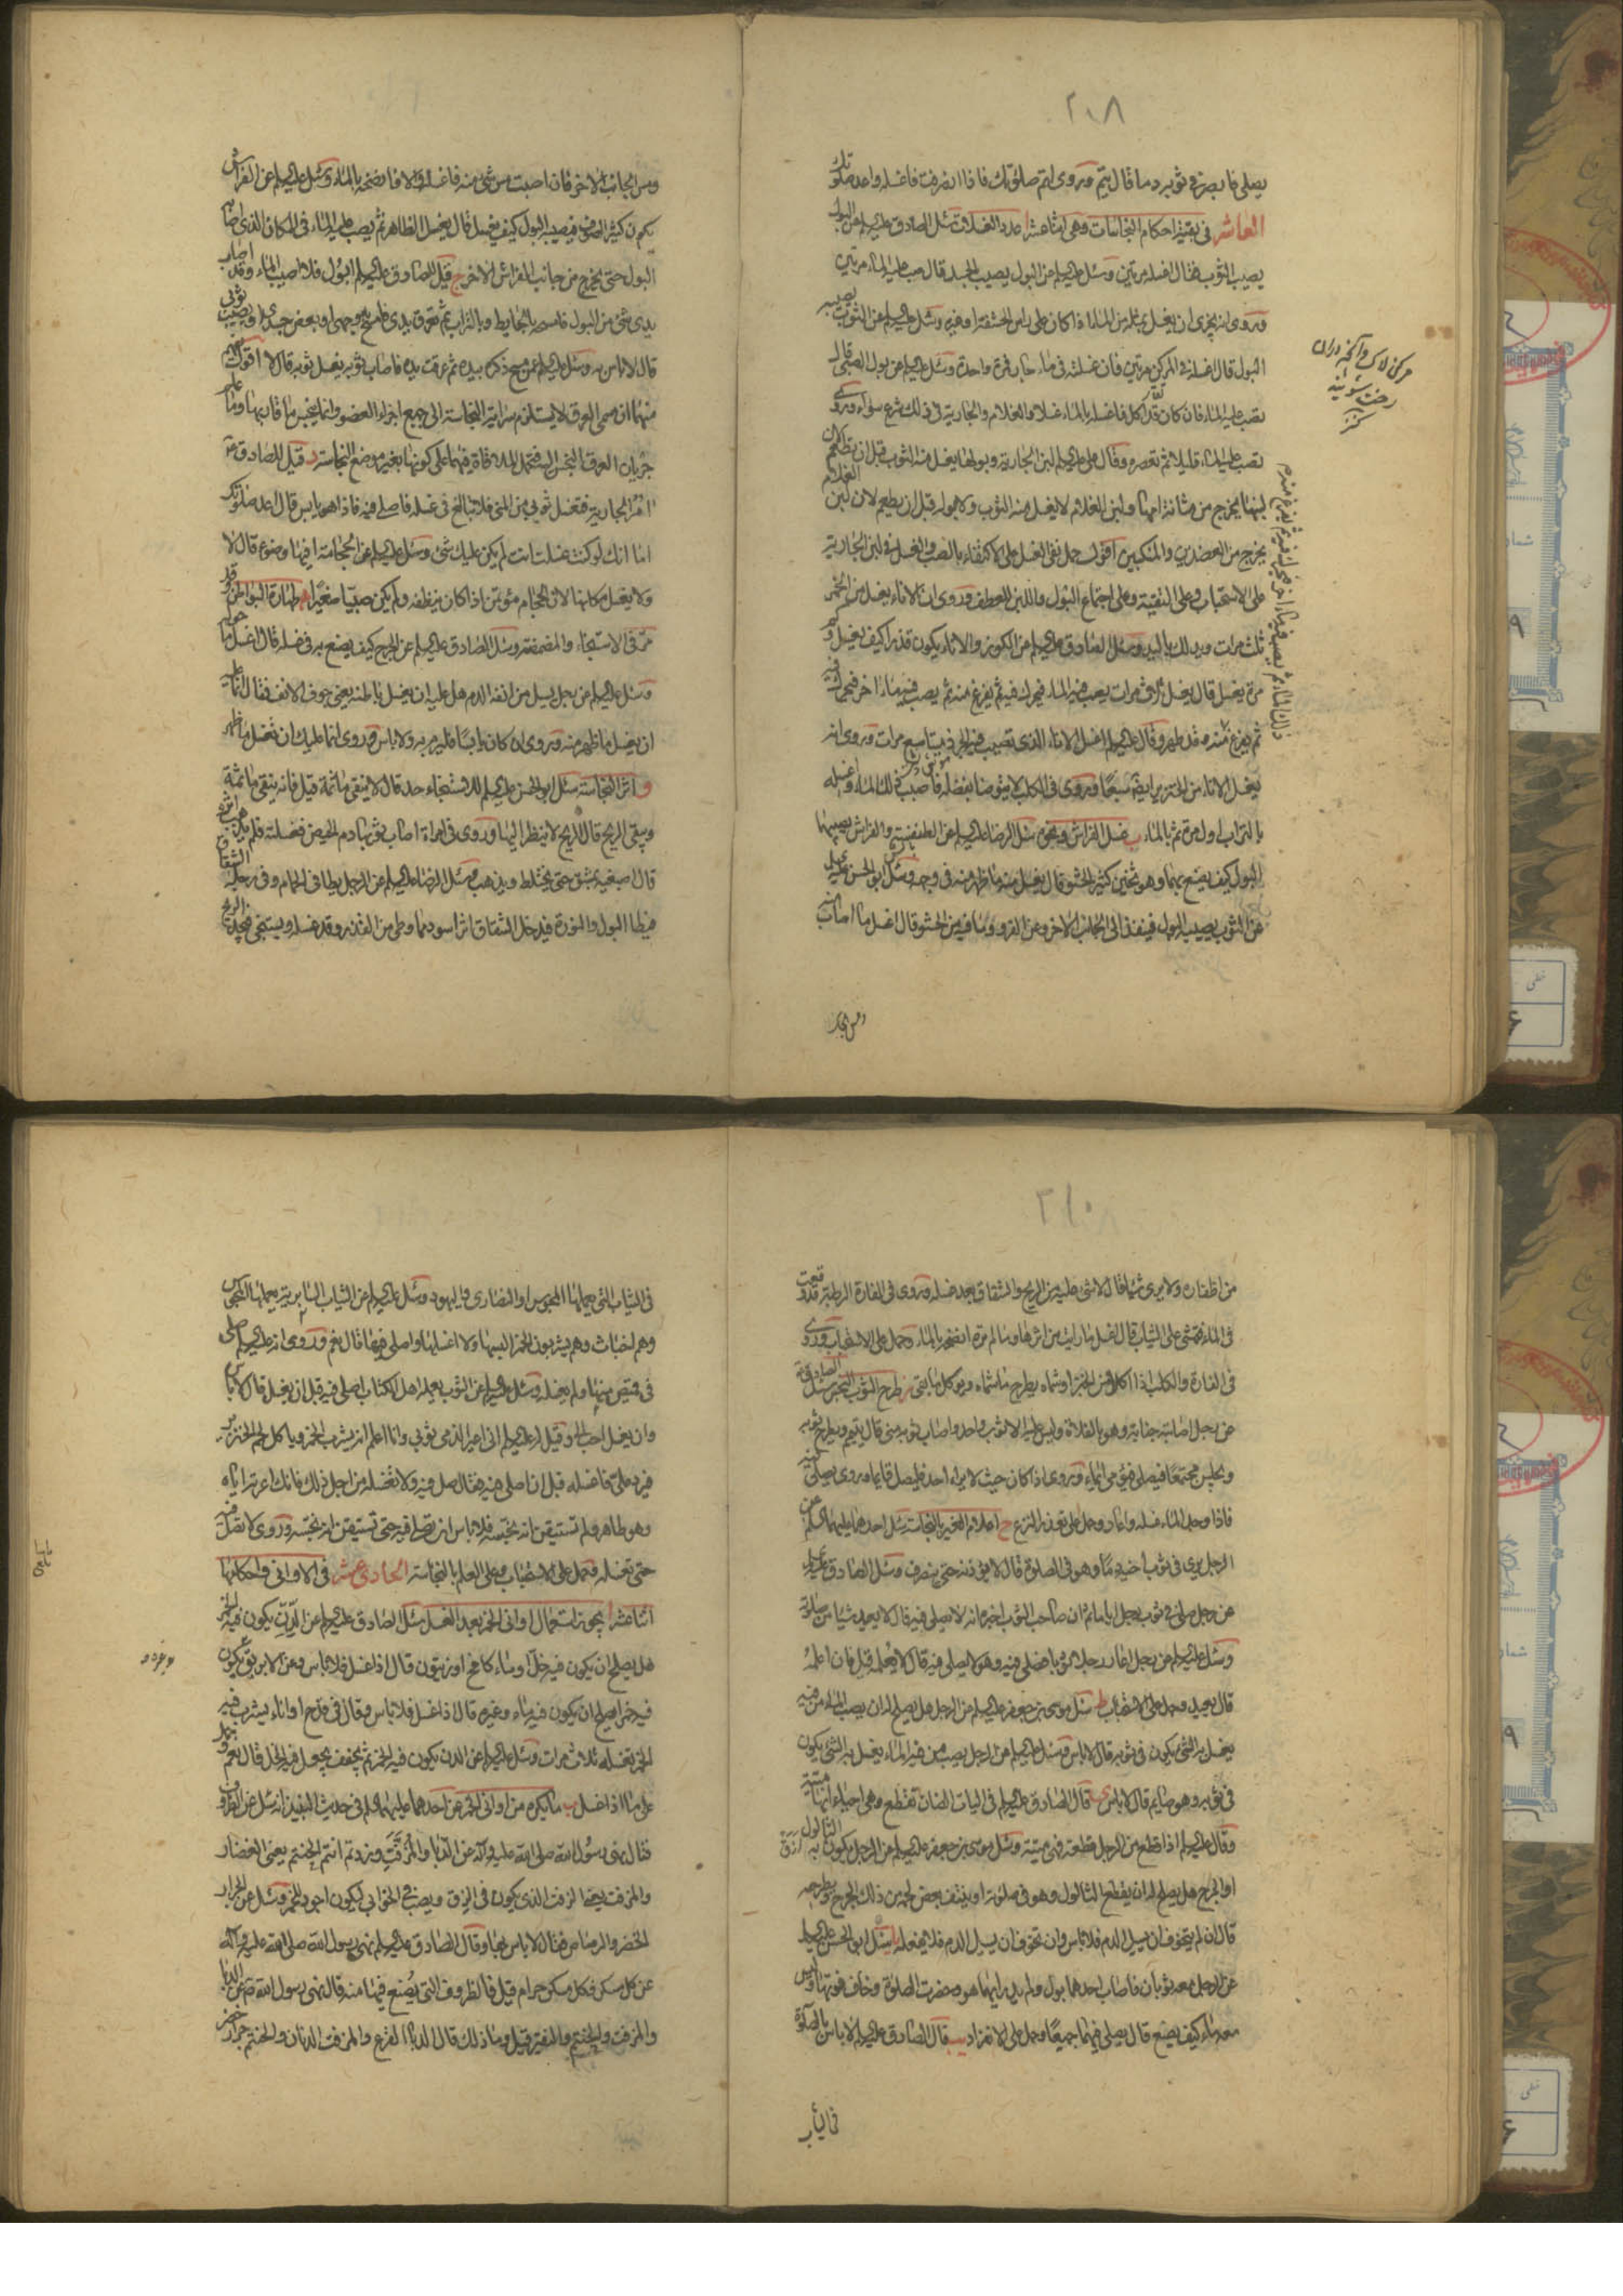 ٢٠٨
يصلي فا بصر في ثوبه دما قال يتم وروى اتم صلوتك فاذا انصرفت فاغسله واعد صلوتك
العاشر في بقية احكام النجاسات وهي اثنا عشر ا عدد الغسلات سئل الصادق عليه السلم عن البول
يصيب الثوب فقال اغسله مرتين وسئل عليه السلم عن البول يصيب الجسد قال صب عليه الماء مرتين
وروى انه يجزى ان يغسل بمثله من الماء اذا كان على راس الحشفة او غيره وسئل عليه السلم عن الثوب يصيبه
البول قال اغسله في المركن مرتين فان غسلته في ماء جار فمرة واحدة وسئل عليه السلم عن بول الصبي قال
تصب عليه الماء فان كان قد اكل فاغسله بالماء غسلا والغلام والجارية في ذلك شرع سواء وروى
تصب عليه الماء قليلا ثم تعصره وقال علي عليه السلم لبن الجارية وبولها يغسل منه الثوب قبل ان تطعم لان
لبنها يخرج من مثانة امها ولبن الغلام لا يغسل منه الثوب ولا بوله قبل ان يطعم لان لبن الغلام
يخرج من العضدين والمنكبين اقول حمل نفي الغسل على الاكتفاء بالصب والغسل في لبن الجارية
على الاستحباب وعلى التقية وعلى اجتماع البول واللبن للعطف وروى ان الاناء يغسل من الخمر
ثلث مرات ويدلك باليد وسئل الصادق عليه السلم عن الكوز والاناء يكون قذرا كيف يغسل وكم
مرة يغسل قال يغسل ثلاث مرات يصب فيه الماء فيحرك فيه ثم يفرغ منه ثم يصب فيه ماء اخر فيحرك فيه
ثم يفرغ منه وقد طهر وقال عليه السلم اغسل الاناء الذي تصيب فيه الجرذ ميتا سبع مرات وروى انه
يغسل الاناء من الخنزير ايضا سبعا وروى في الكلب لا يتوضا بفضله فاصبب ذلك الماء واغسله
بالتراب اول مرة ثم بالماء ب غسل الفراش ونحوه سئل الرضا عليه السلم عن الطنفسة والفراش يصيبهما
البول كيف يصنع بهما وهو ثخين كثير الحشو قال يغسل منه ما ظهر منه في وجهه وسئل ابو الحسن عليه السلم
عن الثوب يصيبه البول فينفذ الى الجانب الاخر وعن الفرو وما فيه من الحشو قال اغسل ما اصاب منه
ومن الجا
مركن لاكن وآنچه در ان
رخت شويند
كنز
ومس الجانب الاخر فان اصبت مس شئ منه فاغسله والا فانضحه بالماء وسئل عليه السلم عن الفراش
يكون كثير الصوف فيصيبه البول كيف يغسل قال يغسل الظاهر ثم يصب عليه الماء في المكان الذي اصابه
البول حتى يخرج من جانب الفراش الاخر ج قيل للصادق عليه السلم ابول فلا اصيب الماء وقد اصاب
يدي شئ من البول فامسحه بالحايط وبالتراب ثم تعرق يدي فامسح به وجهي او بعض جسدي او يصيب ثوبي
قال لا باس به وسئل عليه السلم عمن مسح ذكره بيده ثم عرقت يده فاصاب ثوبه يغسل ثوبه قال لا اقول
منهما ان مسمى العرق لا يستلزم سراية النجاسة الى جميع اجزاء العضو وانما ينجس ما قاربها وما علم
جريان العرق النجس اليه فتحمل الملاقاة فيهما على كونها بغير موضع النجاسة د قيل للصادق ع
امر الجارية فتغسل ثوبي من المني فلا تبالغ في غسله فاصلي فيه فاذا هو يابس قال اعد صلوتك
اما انك لو كنت غسلت انت لم يكن عليك شئ وسئل عليه السلم عن الحجامة افيها وضوء قال لا
ولا يغسل مكانها لان الحجام مؤتمن اذا كان ينظفه ولم يكن صبيا صغيرا ه طهارة البواطن قد
مر في الاستنجاء والمضمضة وسئل الصادق عليه السلم عن الجرح كيف يصنع به في غسله قال اغسل ما حوله
وسئل عليه السلم عن رجل يسيل من انفه الدم هل عليه ان يغسل باطنه يعني جوف الانف فقال انما عليه
ان يغسل ما ظهر منه وروى ان كان يابسا فليرم به ولا باس وروى انما عليك ان تغسل ما ظهر
و اثر النجاسة سئل ابو الحسن عليه السلم للاستنجاء حد قال لا ينقى ما ثمة قيل فانه ينقى ما ثمة
ويبقى الريح قال الريح لا ينظر اليها وروى في امراة اصاب ثوبها دم الحيض فغسلته فلم يذهب اثره
قال اصبغيه بمشق حتى يختلط ويذهب وسئل الرضا عليه السلم عن الرجل يطا في الحمام وفي رجله الشقاق
فيطا البول والنورة فيدخل الشقاق اثر اسود مما وطئ من القذر وقد غسله ويستنجي فيجد الريح
٢١٠
من اظفاره ولا يرى شيئا قال لا شئ عليه من الريح والشقاق بعد غسله وروى في الفارة الرطبة قد وقعت
في الماء تمشي على الثياب قال اغسل ما رايت من اثرها وما لم تره انضحه بالماء وحمل على الاستحباب وروى
في الفارة والكلب اذا اكلا من الخبز او شماه يطرح ما شماه ويوكل ما بقى ز طرح الثوب النجس سئل الصادق ع
عن رجل اصابته جنابة وهو بالفلاة وليس عليه الا ثوب واحد واصاب ثوبه مني قال يتيمم ويطرح ثوبه
ويجلس مجتمعا فيصلي فيومي ايماء وروى اذا كان حيث لا يراه احد فليصل قايما وروى يصلي فيه
فاذا وجد الماء غسله واعاد وحمل على تعذر النزع ح اعلام الغير بالنجاسة سئل احدهما عليهما السلم عن
الرجل يرى في ثوب اخيه دما وهو في الصلوة قال لا يؤذنه حتى ينصرف وسئل الصادق عليه السلم
عن رجل صلى في ثوب رجل اياما ثم ان صاحب الثوب اخبره انه لا يصلي فيه قال لا يعيد شيئا من صلوته
وسئل عليه السلم عن رجل اعار رجلا ثوبا فصلى فيه وهو لا يصلي فيه قال لا يعلمه قيل فان اعلمه
قال يعيد وحمل على الاستحباب ط سئل موسى بن جعفر عليه السلم عن الرجل هل يصلح له ان يصب الماء من فيه
يغسل به الشئ يكون في ثوبه قال لا باس وسئل عليه السلم عن الرجل يصب من فيه الماء يغسل به الشئ يكون
في ثوبه وهو صايم قال لا باس ى قال الصادق عليه السلم في اليات الضان تقطع وهي احياء انها ميتة
وقال عليه السلم اذا قطع من الرجل قطعة فهي ميتة وسئل موسى بن جعفر عليه السلم عن الرجل يكون به الثالول
او الجرح هل يصلح له ان يقطع الثالول وهو في صلوته او ينتف بعض لحمه من ذلك الجرح ويطرحه
قال ان لم يتخوف ان يسيل الدم فلا باس وان تخوف ان يسيل الدم فلا يفعله يا سئل ابو الحسن عليه السلم
عن الرجل معه ثوبان فاصاب احدهما بول ولم يدر ايهما هو وحضرت الصلوة وخاف فوتها وليس
معه ماء كيف يصنع قال يصلي فيهما جميعا وحمل على الانفراد يب قال الصادق عليه السلم لا باس بالصلوة
في الثياب
في الثياب التي يعملها المجوس او النصارى واليهود وسئل عليه السلم عن الثياب السابرية يعملها المجوس
وهم اخباث وهم يشربون الخمر البسها ولا اغسلها واصلي فيها قال نعم وروى انه عليه السلم صلى
في قميص منها ولم يغسله وسئل عليه السلم عن الثوب يعمله اهل الكتاب اصلي فيه قبل ان يغسل قال لا باس
وان يغسل احب الي وقيل له عليه السلم اني اعير الذمي ثوبي وانا اعلم انه يشرب الخمر وياكل لحم الخنزير
فيرده علي فاغسله قبل ان اصلي فيه فقال صل فيه ولا تغسله من اجل ذلك فانك اعرته اياه
وهو طاهر ولم تستيقن انه نجسه فلا باس ان تصلي فيه حتى تستيقن انه نجسه وروى لا تصل فيه
حتى تغسله فحمل على الاستحباب وعلى العلم بالنجاسة الحادي عشر في الاواني واحكامها
اثنا عشر ا يجوز استعمال اواني الخمر بعد الغسل سئل الصادق عليه السلم عن الدن يكون فيه الخمر
هل يصلح ان يكون فيه خل او ماء كامخ او زيتون قال اذا غسل فلا باس وعن الابريق يكون
فيه خمر ايصلح ان يكون فيه ماء وغيره قال اذا غسل فلا باس وقال في قدح او اناء يشرب فيه
الخمر تغسله ثلاث مرات وسئل عليه السلم عن الدن يكون فيه الخمر ثم يجفف يجعل فيه الخل قال نعم وحمل
على ما اذا غسل ب ما يكره من اواني الخمر عن احدهما عليهما السلم في حديث النبيذ انه سئل عن الظروف
فقال نهى رسول الله صلى الله عليه وآله عن الدباء والمزفت وزدتم انتم الحنتم يعني الغضار
والمزفت يعني الزفت الذي يكون في الزق ويصب في الخوابي ليكون اجود للخمر وسئل عن الجرار
الخضر والرصاص فقال لا باس بها وقال الصادق عليه السلم نهى رسول الله صلى الله عليه وآله
عن كل مسكر فكل مسكر حرام قيل فالظروف التي يصنع فيها منه قال نهى رسول الله ص عن الدباء
والمزفت والحنتم والنقير قيل وما ذلك قال الدباء القرع والمزفت الدنان والحنتم جرار خضر